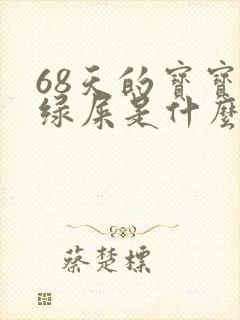 68天的寶寶
绿屎是什麼
蔡楚標